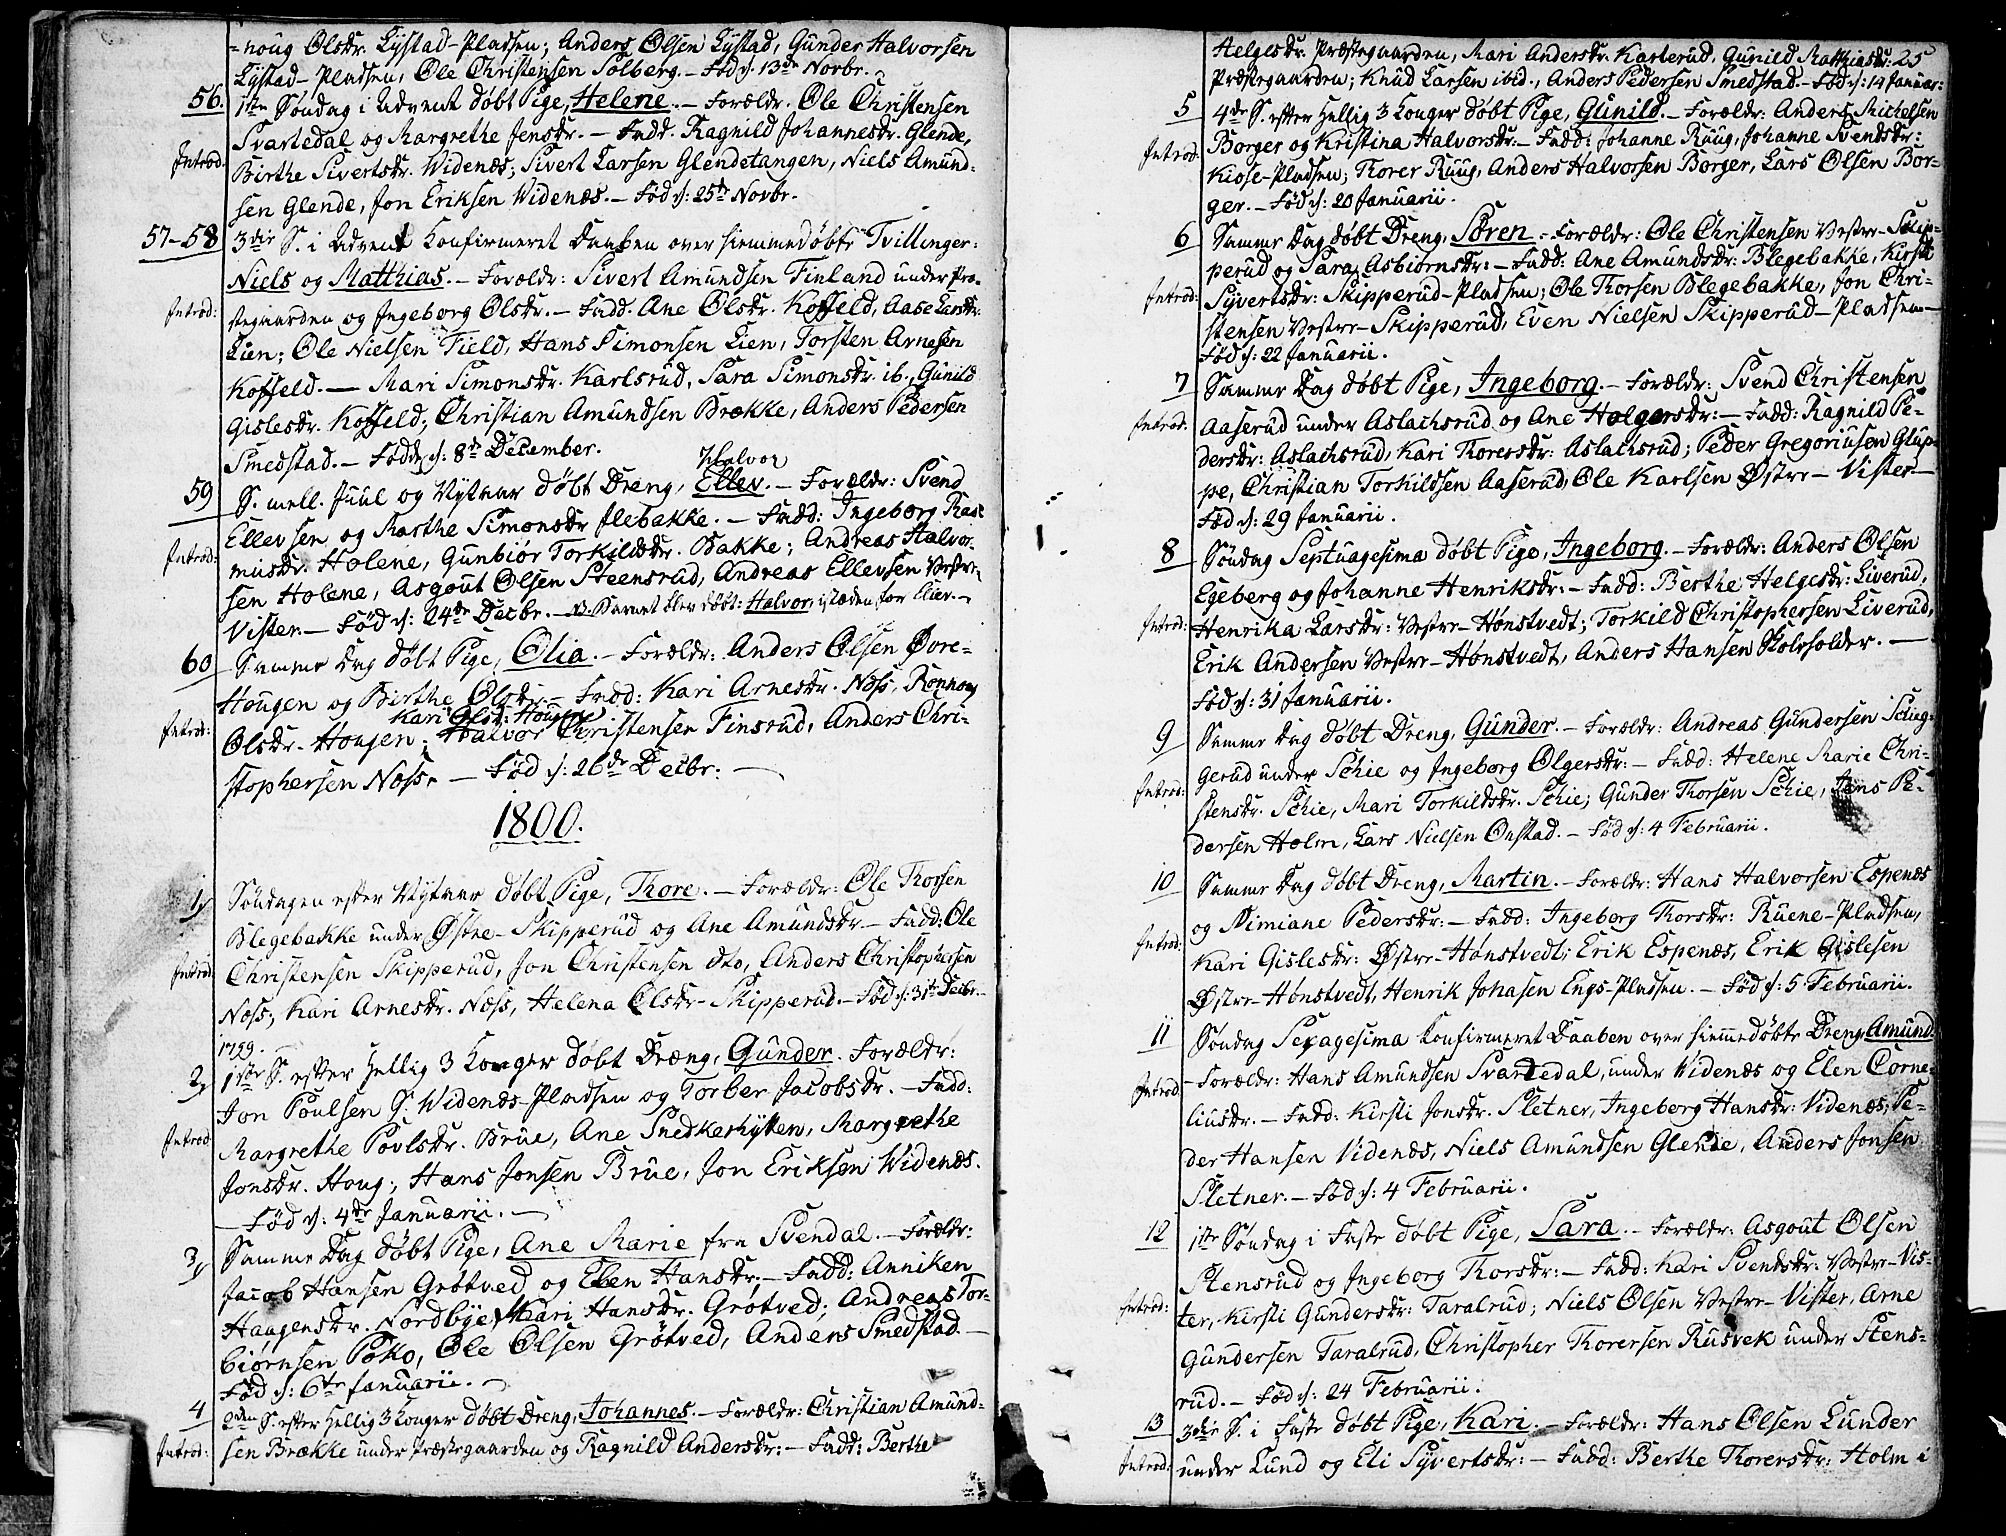 =noug Olsdr. Lÿstad-Pladsen; Anders Olsen Lÿstad, Gunder Halvorsen
Lÿstad-Pladsen, Ole Christensen Solberg. – Fød d: 13de Novbr.
56. 1ste Søndag i Advent døbt Pige, Helene. – Forældr. Ole Christensen
Svartedal og Margrethe Jensdr. – Fadd. Ragnild Johannesdr. Glende,
Introd. Birthe Sivertsdr. Widenæs; Sivert Larsen Glendetangen, Niels Amund-
sen Glende, Jon Eriksen Widenæs. – Fød d: 25de Novbr.
57-58 3die S. i Advent Confirmeret Daaben over hiemmedøbte Tvillinger:
Niels og Matthias. – Forældr: Sivert Amundsen Finland under Præ-
Introd: stegaarden og Ingeborg Olsdr. – Fadd. Ane Olsdr. Koffeld, Aase Larsdr.
Lien; Ole Nielsen Field, Hans Simonsen Lien, Torsten Arnesen
Koffeld. – Mari Simonsdr. Karlsrud, Sara Simonsdr. ib., Gunild
Gislesdr. Koffeld; Christian Amundsen Brække, Anders Pedersen
Smedstad. – Fødde d: 8de December.
Halvor
59 S. mell. Juul og Nytaar døbt Dreng, Ellev. – Forældr: Svend
Ellevsen og Marthe Simonsdr Flebakke. – Fadd: Ingeborg Ras-
Introd: musdr. Holene, Gunbiør Torkildsdr. Bakke; Andreas Halvor-
sen Holene, Asgout Olsen Steensrud, Andreas Ellevsen Vestre-
Vister. – Fød d: 24de Decbr. – Barnet blev døbt: Halvor, isteden for Ellev. –
60 Samme Dag døbt Pige, Olia. – Forældr: Anders Olsen Øvre-
Hougen og Birthe Olsdr. – Fadd: Kari Arnesdr. Næss, Rønnoug
Kari Olsdr. Hougen
Introd: Olsdr. Hougen; Halvor Christensen Finsrud, Anders Chri-
stophersen Næss. – Fød d: 26de Decbr: –
1800.
1, Søndagen efter Nytaar døbt Pige, Thore. – Forældr: Ole Thorsen
Blegebakke under Østre-Skipperud og Ane Amundsdr – Fadd: Ole
Introd Christensen Skipperud, Jon Christensen dto, Anders Christophersen
Næss; Kari Arnesdr. Næss, Helena Olsdr-Skipperud. – Fød d: 31te Decbr.
1799.
2, 1ste S. efter Hellig 3 Konger døbt Dræng, Gunder. Forældr:
Jon Poulsen S: Widenæs-Pladsen og Torber Jacobsdr. – Fadd:
Introd Margrethe Povlsdr. Brüe, Ane Snedkerhytten, Margrethe
Jonsdr. Houg; Hans Jonsen Brüe, Jon Eriksen Widenæs.
– Fød d: 4de Januarii. –
3, Samme Dag døbt Pige, Ane Marie fra Svendal. – Forældr:
Jacob Hansen Grøtved og Eben Hansdr. – Fadd: Anniken
Haagensdr. Nordbye, Mari Hansdr. Grøtved; Andreas Tor-
biørnsen Poko, Ole Olsen Grøtved, Anders Smedstad –
Fød d: 6te Januarii. –
4 2den S. efter Hellig 3 Konger døbt Dreng, Johannes. – Forældr: Christian Amund-
Introd: sen Brække under Præstegaarden og Ragnild Andersdr: – Fadd: Berthe
25
Helgesdr. Præstegaarden, Mari Andersdr. Karlerud, Gunild Matthiasdr:
Præstegaarden; Knud Larsen ibid., Anders Pedersen Smedstad. – Fød d: 14 Januar:
5 4de S. efter Hellig 3 Konger døbt Pige, Gunild. – Forældr: Anders Michelsen
Introd: Borger og Kristina Halvorsdr. – Fadd: Johanne Ruug, Johanne Svendsdr:
Kiose-Pladsen; Thorer Ruug, Anders Halvorsen Borger, Lars Olsen Bor-
ger. – Fød d: 20 Januarii.
6 Samme Dag døbt Dreng, Søren. – Forældr: Ole Christensen Vestre-Skip-
perud og Sara Asbiørnsdr: – Fadd: Ane Amundsdr: Blegebakke, Kirsti
Introd: Syvertsdr: Skipperud-Pladsen; Ole Thorsen Blegebakke, Jon Chri-
stensen Vestre-Skipperud, Even Nielsen Skipperud-Pladsen –
Fød d: 22 Januarii.
7 Samme Dag døbt Pige, Ingeborg. – Forældr: Svend Christensen
Introd: Aaserud under Aslachsrud og Ane Holgersdr: – Fadd: Ragnild Pe-
dersdr: Aslachsrud, Kari Thorersdr: Aslachsrud; Peder Gregoriusen Glup-
pe, Christian Torkildsen Aaserud, Ole Karlsen Østre-Vister –
Fød d: 29 Januarii.
8 Søndag Septuagesima døbt Pige, Ingeborg. – Forældr: Anders Olsen
Egeberg og Johanne Henriksdr: – Fadd: Berthe Helgesdr: Liverud,
Introd: Henrika Larsdr: Vestre-Hønstvedt; Torkild Christophersen Liverud,
Erik Andersen Vestre-Hønstvedt, Anders Hansen Skoleholder. –
Fød d: 31 Januarii.
9 Samme Dag døbt Dreng, Gunder. – Forældr: Andreas Gundersen Schieg-
gerud under Schie og Ingeborg Olgersdr: – Fadd: Helene Marie Chri-
Introd: stensdr. Schie, Mari Torkildsdr. Schie; Gunder Thorsen Schie, Jens Pe-
dersen Holm, Lars Nielsen Onstad. – Fød d: 4 Februarii.
10 Samme Dag døbt Dreng, Martin. – Forældr: Hans Halvorsen Espenæs
og Dimiane Pedersdr: – Fadd: Ingeborg Thorsdr: Ruene-Pladsen,
Introd: Kari Gislesdr: Østre-Hønstvedt; Erik Espenæs, Erik Gislesen
Østre-Hønstvedt, Henrik Johasen Engs-Pladsen. – Fød d: 5 Februarii.
11 Søndag Sexagesima Confirmeret Daaben over hiemmedøbte Dreng, Amund.
Introd: – Forældr: Hans Amundsen Svartedal, under Widenæs og Elen Corne-
liusdr. – Fadd: Kirsti Jonsdr. Sletner, Ingeborg Hansdr: Videnæs; Pe-
der Hansen Videnæs, Niels Amundsen Glende, Anders Jonsen
Sletner. – Fød d: 4 Februarii.
12 1ste Søndag i Faste døbt Pige, Sara. – Forældr: Asgout Olsen
Stensrud og Ingeborg Thorsdr: – Fadd: Kari Svendsdr: Vestre-Vis-
Introd: ter, Kirsti Gundersdr: Taralrud; Niels Olsen Vestre-Vister, Arne
Gundersen Taralrud, Christopher Thorersen Rusvek under Stens-
rud. – Fød d: 24 Februarii.
13 3die S. i Faste døbt Pige, Kari. – Forældr: Hans Olsen Lunder
Introd: under Lund og Eli Syvertsdr: – Fadd: Berthe Thorersdr: Holm i